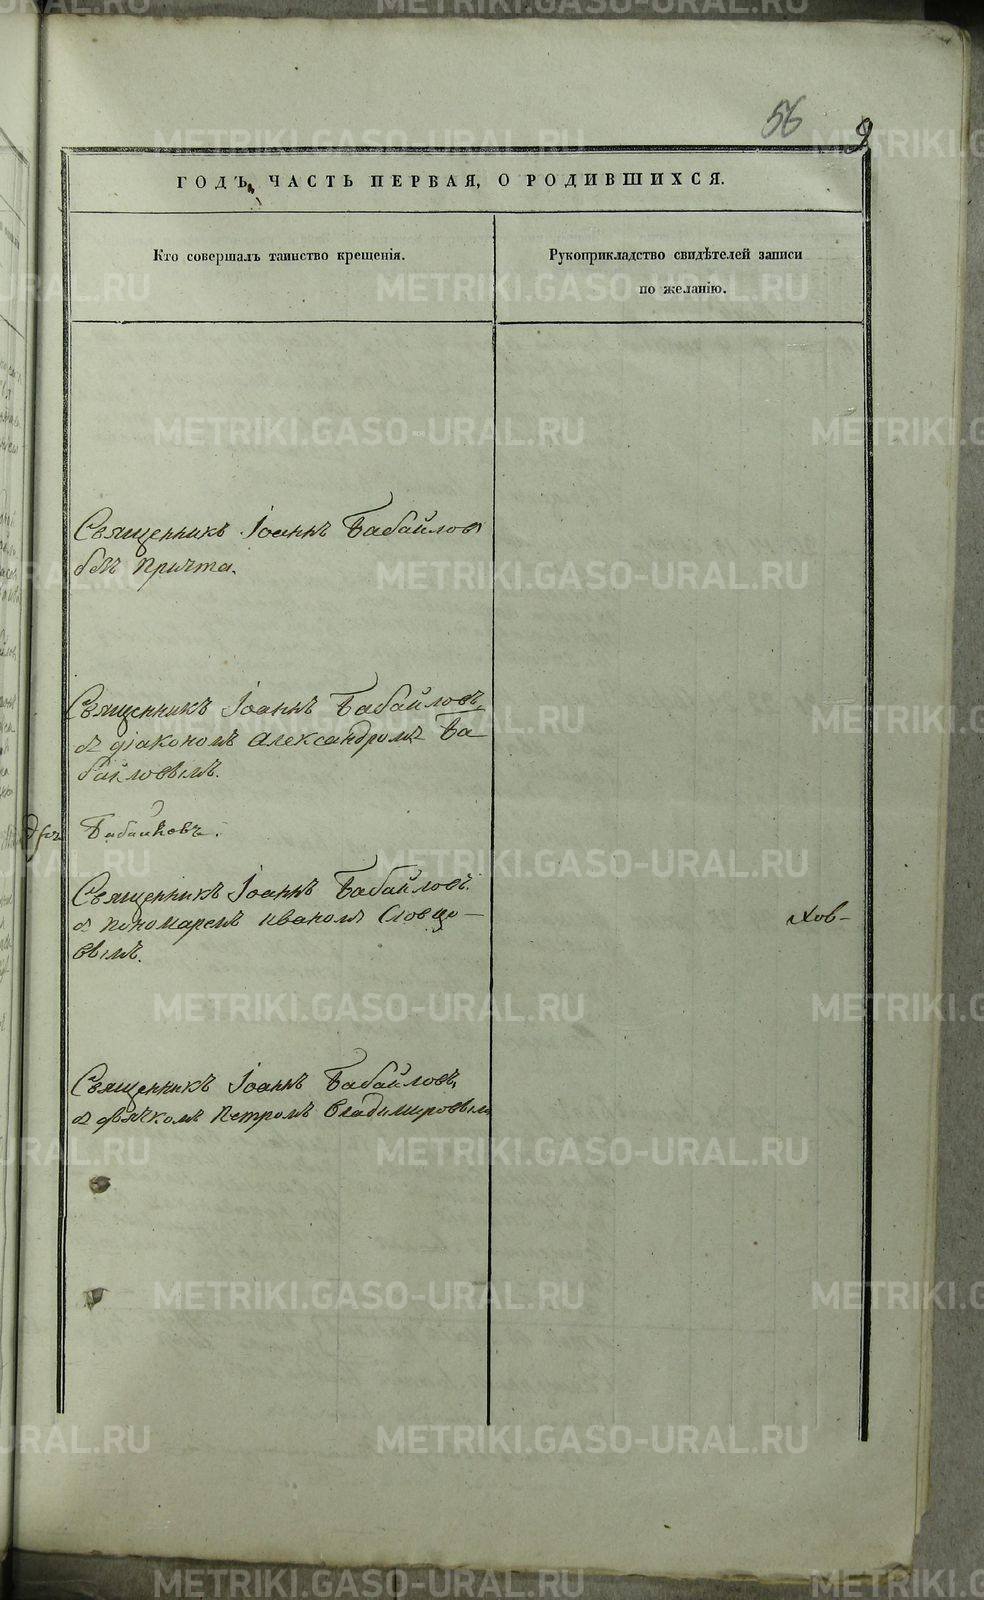 56
9
ГОДЪ, ЧАСТЬ ПЕРВАЯ, О РОДИВШИХСЯ.
Кто совершалъ таинство крещенія.
Рукоприкладство свидѣтелей записи
по желанію.
Священникъ Іоаннъ Бабайловъ
безъ причта.
Священникъ Іоаннъ Бабайловъ,
съ діакономъ Александромъ Ба
байловымъ.
Священникъ Іоаннъ Бабайловъ
съ пономаремъ Иваномъ Словцо-
вымъ.
хов-
Священникъ Іоаннъ Бабайловъ,
съ дьячкомъ Петромъ Владимировым
METRIKI.GASO-URAL.RU